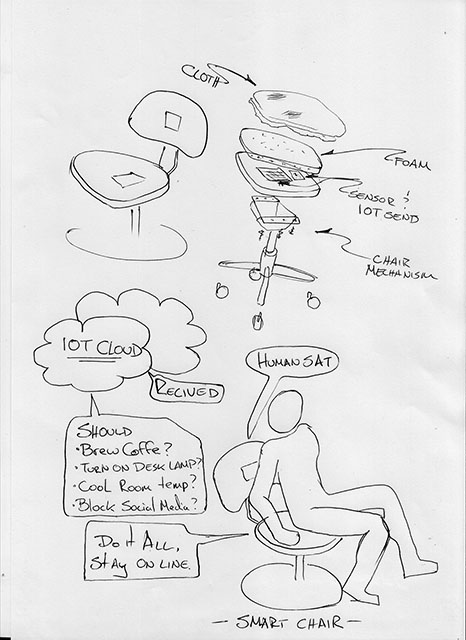 CLOTH
FOAM
SENSOR &
IOT SEND
CHAIR
MECHANISM
IOT CLOUD
RECIVED
HUMAN SAT
SHOULD
• Brew Coffe?
• TURN ON DESK LAMP?
• Cool Room temp?
• Block Social Media?
Do It ALL,
Stay ON LINE.
— SMART CHAIR —